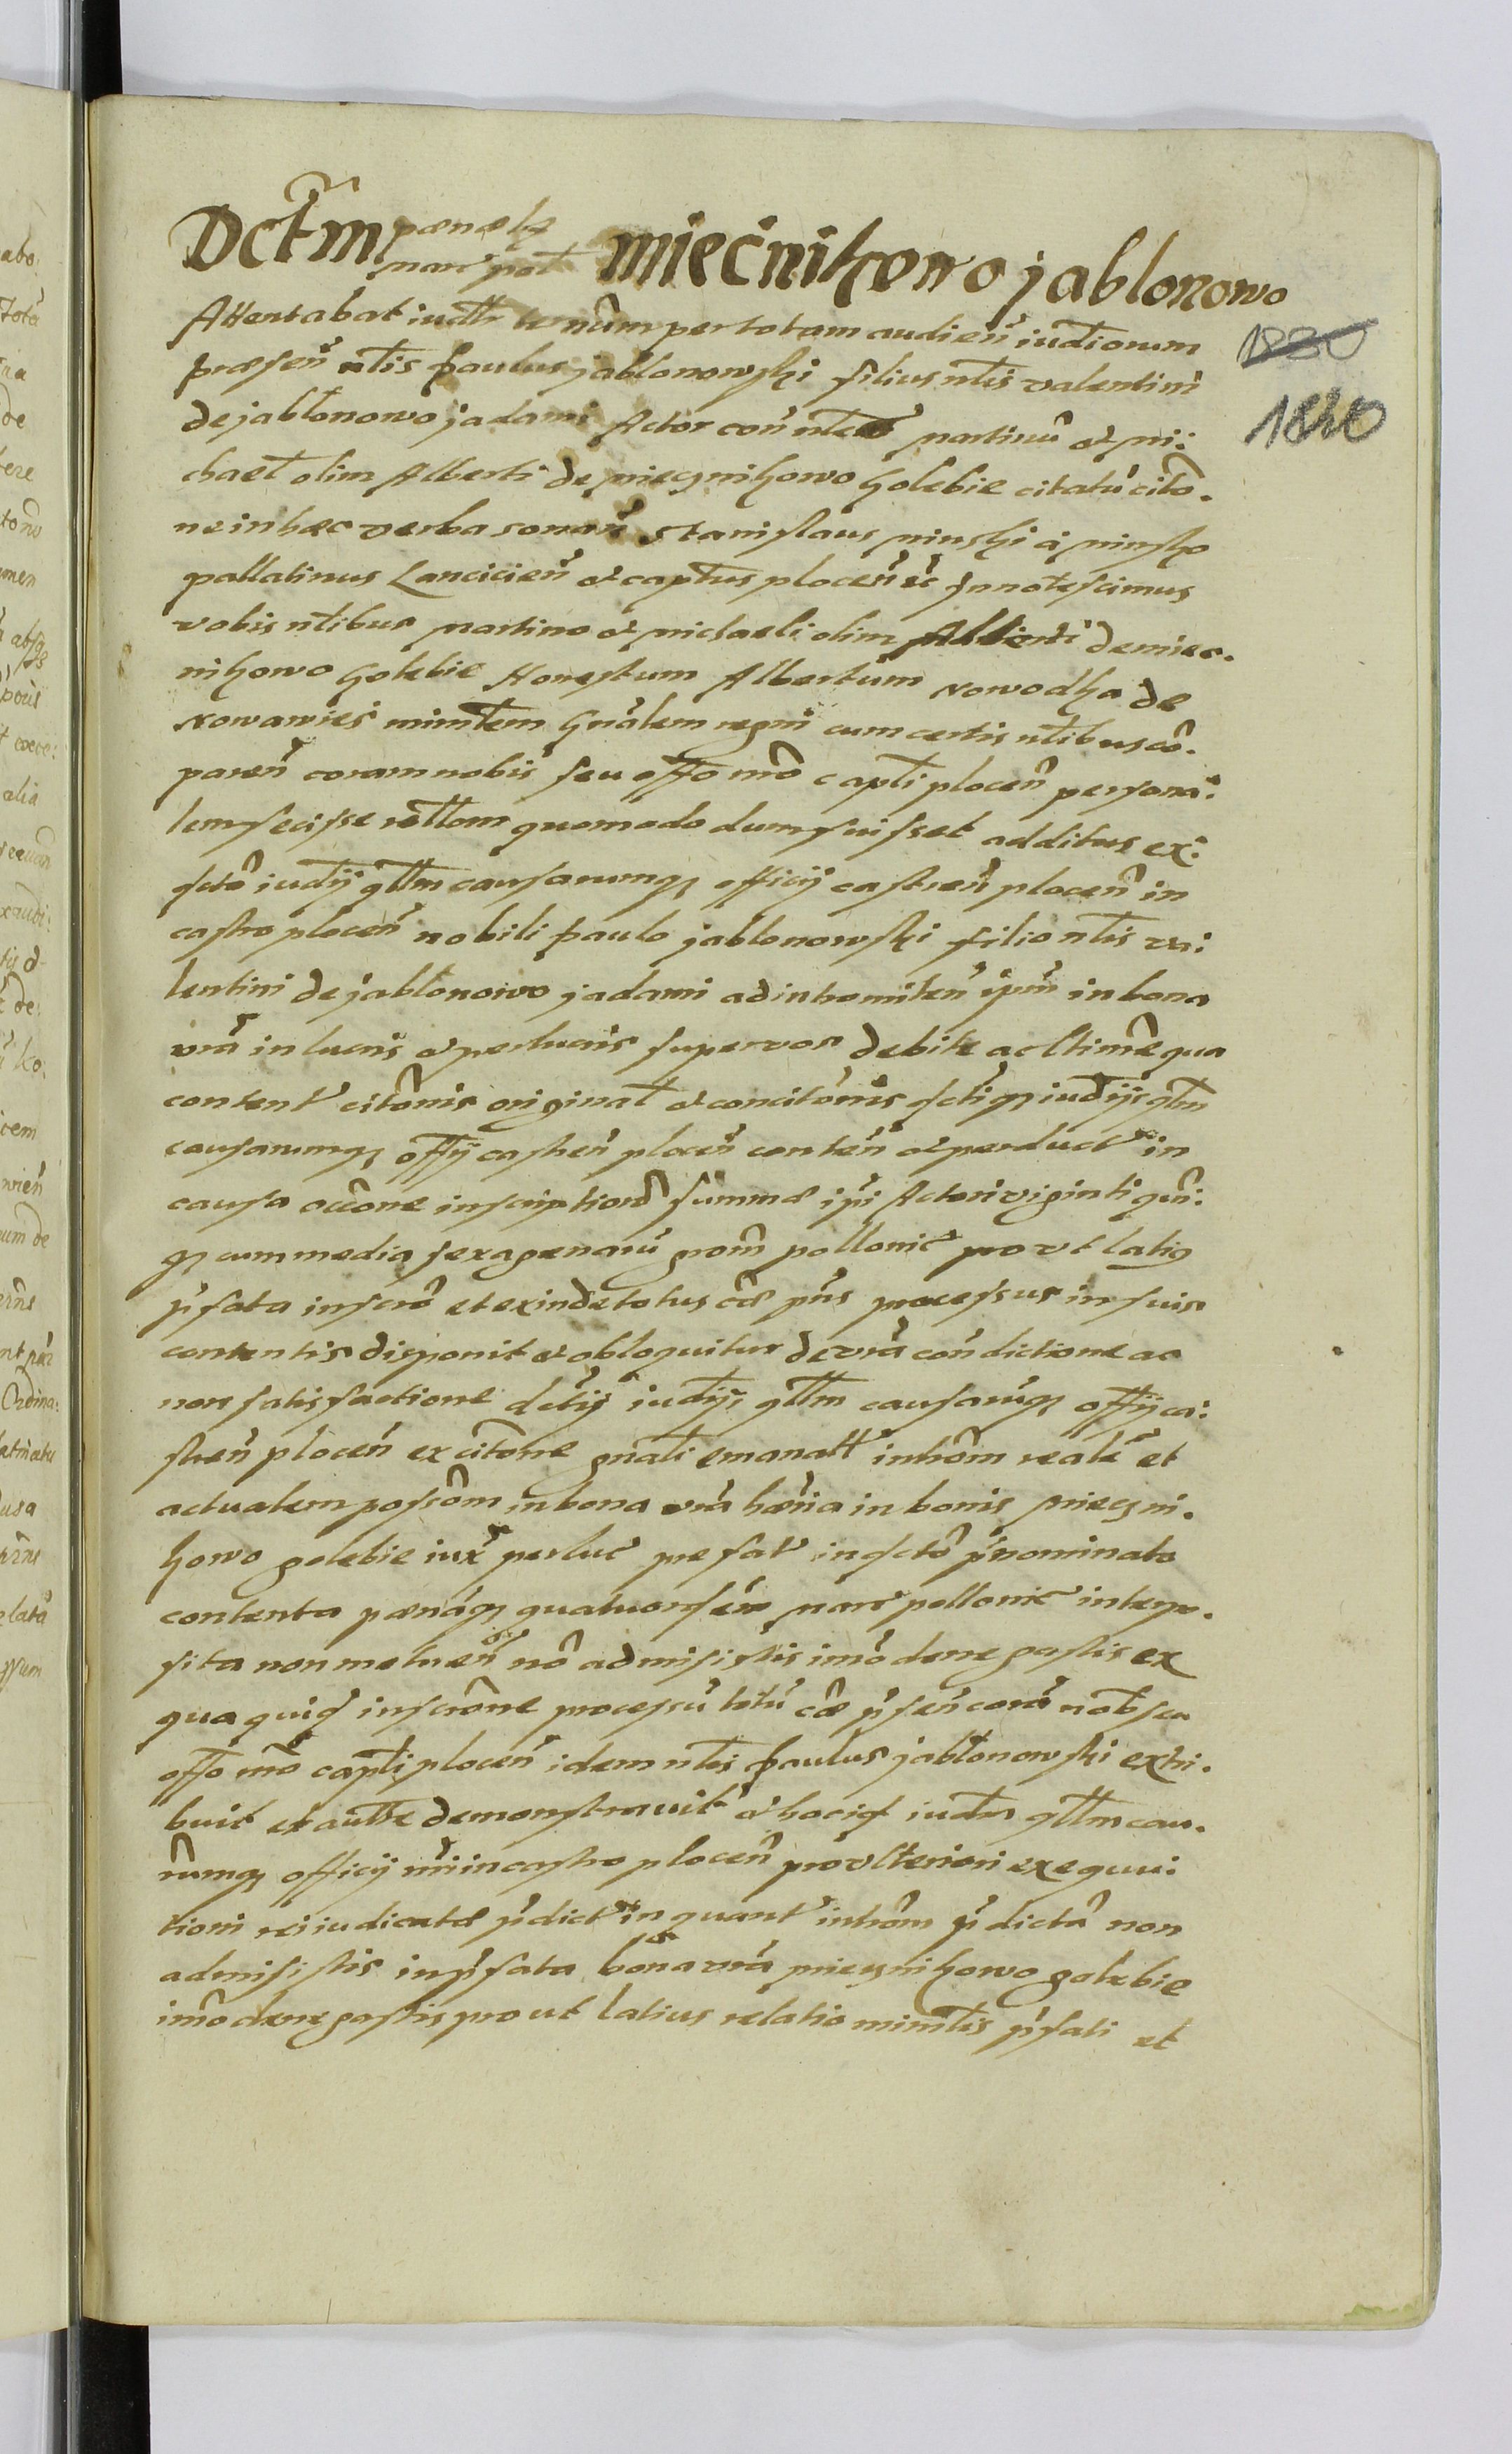 Dctm̃ pænaleʒ miećnikowo jablonowo
marͨ pol̃
Attentabat iudtr t̃ num̃ per totam audień iudtiorum
præseń nt̃lis paulus jablonowski filius nt̃lis valentini
de jablonowo jadami Actor coń nt̃les martinũ et mi:
chael̃ olim Alberti de miecznikowo golebie citatũ citõ.
ne in hæc verba sonań Stanislaus minski á minsko
pallatinus Lancicień et captus plocen̄ ec̃ Innotescimus
vobis nt̃libus martino et michaeli olim Alberti de miec.
nikowo golebie Honestum Albertum nowodka de
nowawies minrtem gnálem regni cum certis nt̃libus cõ.
pareń coram nobis seu offo nrõ captli plocen̄ persona:
lem fecisse rel̃tom quomodo dum fuisset additus ex:
dctõ iudij ql̃lm causarumqʒ officij castreń plocen̄ in
castro plocen̄ nobili paulo jablonowski filio nt̃lis va:
lentini de jablonowo jadami ad intromiteń ipm̃ in bona
vrã in lucris et perlucris super vos debite ac ltime qua
content citõnis original̃ et concitõnis dctiqʒ iudijs ql̃lm
causarumqʒ offij castreń plocen̄ conteń et perduct in
causa occõne inscriptionis summæ ipi Actori viginti qui:
qʒ cum media sexagenarũ grom̃ pollonic prout latiʒ
p̃fata inscrõ et exinde totus cæ pńs processus in suis
contentis disponit et obloquitur de vrã condictione ac
non satisfactione dctij iudij, ql̃lm causarũqʒ offij ca:
streń plocen̄ ex citõne gnãli emanatt introm̃ realẽ et
actualem possom̃ in bona vrã hæria in bonis mieczni.
kowo golebie iux̃ perluc præfat in dctõ p̃nominato
contenta pænáqʒ quatuordẽ marͨ pollonic interpo.
sita non metueń nõ admisistis imõ denegastis ex
qua quidʒ inscrõne processũ totũ cæ p̃seń corã nob seu
offo nrõ captli plocen̄ idem nt̃lis paulus jablonowski exhi.
buit et autte demonstravit et hocidʒ iudm̃ ql̃lm cau.
rumqʒ officij nrĩ in castro plocen̄ pro ulteriori exequu:
tioni rei iudicatæ p̃dict in quant introm̃ p̃dictã non
admisistis in p̃fata bona vrã miecznikowo golebie
imõ denegastis prout latius relatio minrtis p̃fati et
1830
1840